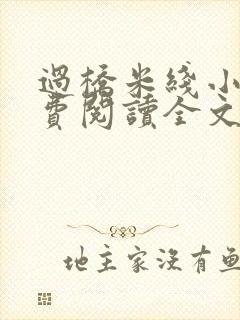 過橋米綫小
費閱讀全文
地主家沒有魚